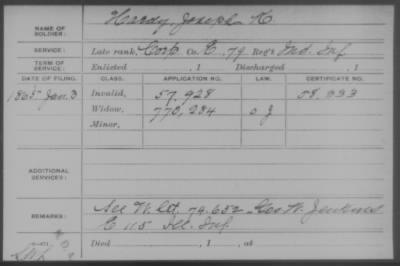 NAME OF SOLDIER: Hardy, Joseph K
SERVICE: Late rank, Corp Co. E, 79 Reg't Ind. Inf
TERM OF SERVICE: Enlisted , 1 Discharged , 1
DATE OF FILING. CLASS. APPLICATION NO. LAW. CERTIFICATE NO.
1865 Jan. 3 Invalid, 57,928 58,033
Widow, 770,284 o g
Minor,
ADDITIONAL SERVICES:
REMARKS: See W. Ctf. 74,652 Geo W. Jenkins
E 115 Ill. Inf
Died , 1 , at